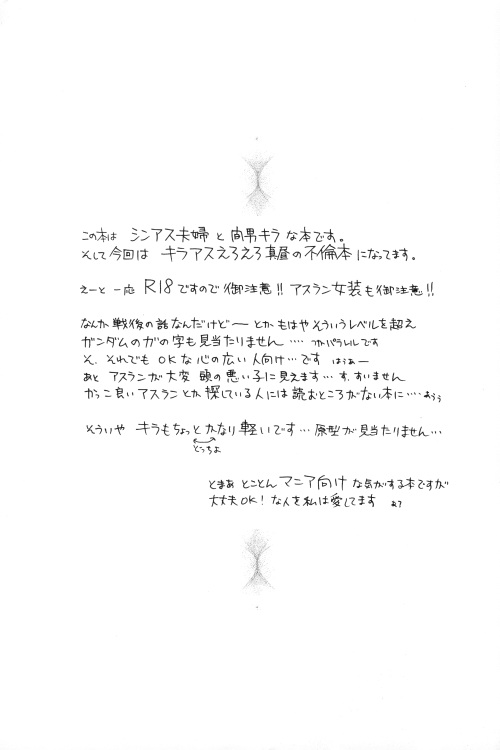 この本は シンアス夫婦 と 間男キラ な本です。
そして今回は キラアスえろえろ真昼の不倫本 になってます。
えーと 一応 R18 ですので 御注意!! アスラン女装も御注意!!
なんか 戦後の話なんだけどー とか もはや そういうレベルを超え
ガンダムのガの字も見当たりません … つかパラレルです
そ、それでも OK な心の広い人向け…です はうあー
あと アスランが大変 頭の悪い子に見えます… す、すいません
かっこ良いアスランとか探している人には読むところがない本に…
そういや キラもちょっとかなり軽いです… 原型が見当たりません…
どっちよ
とまぁ とことん マニア向け な気がする本ですが
大丈夫OK! な人を私は愛してます